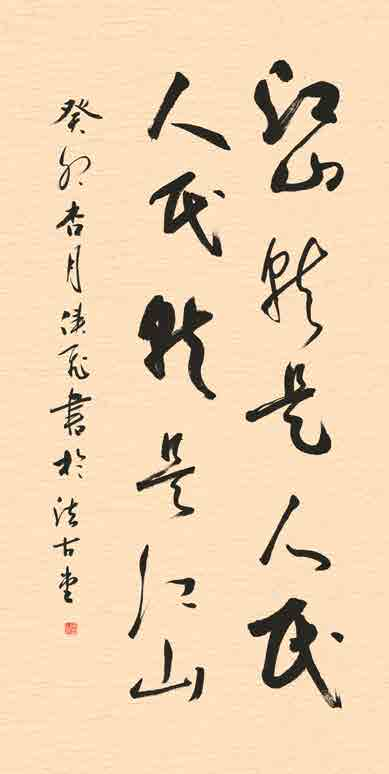 江山就是人民
人民就是江山
癸卯杏月 飞书于法古堂